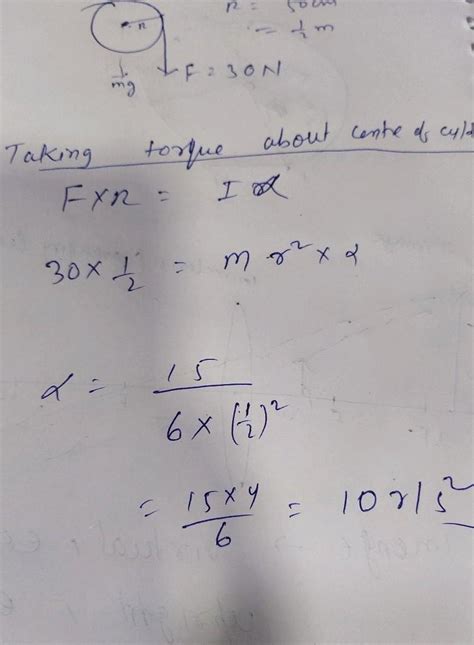 r = 50cm
r
= 1/2 m
mg
F = 30N
Taking torque about centre of cyl
F×r = Iα
30 × 1/2 = m r² × α
α = 15 / 6 × (1/2)²
= 15×4 / 6 = 10 r/s²